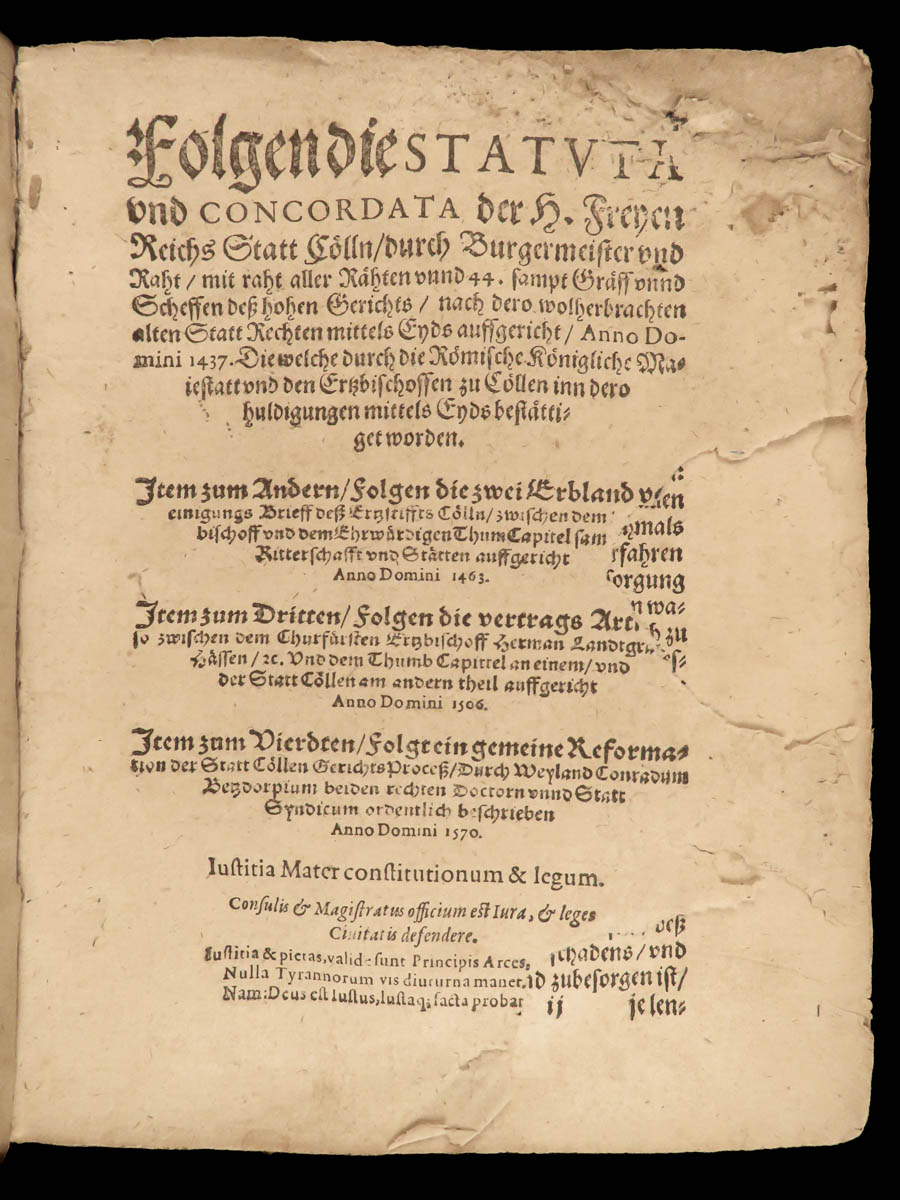 Folgen die STATVTA
vnd CONCORDATA der H. Freyen
Reichs Statt Cölln/durch Burgermeister vnd
Raht / mit raht aller Rähten vnnd 44. sampt Gräff vnnd
Scheffen deß hohen Gerichts / nach dero wolherbrachten
alten Statt Rechten mittels Eyds auffgericht / Anno Do-
mini 1437. Die welche durch die Römische Königliche Ma-
iestatt vnd den Ertzbischoffen zu Cöllen inn dero
huldigungen mittels Eyds bestätti-
get worden.
Item zum Andern/Folgen die zwei Erbland
einigungs Brieff deß Ertzstiffts Cölln/zwischen dem
bischoff vnd dem Ehrwürdigen Thum Capitel sam
Ritterschafft vnd Stätten auffgericht
Anno Domini 1463.
Item zum Dritten/Folgen die vertrags Art
so zwischen dem Churfürsten Ertzbischoff Herman Landtgr
Hässen / ꝛc. Vnd dem Thumb Capittel an einem/vnd
der Statt Cöllen am andern theil auffgericht
Anno Domini 1506.
Item zum Vierdten/Folgt ein gemeine Reforma-
tion der Statt Cöllen Gerichts Proceß/Durch Weyland Conradum
Betzdorpium beiden rechten Doctorn vnnd Statt
Syndicum ordentlich beschrieben
Anno Domini 1570.
Iustitia Mater constitutionum & legum.
Consulis & Magistratus officium est Iura, & leges
Ciuitatis defendere.
Iustitia & pietas, validæ sunt Principis Arces,
Nulla Tyrannorum vis diuturna manet.
Nam: Deus est Iustus, Iustaq; facta probat
en
mals
fahren
orgung
wa-
zu
es-
deß
schadens / vnd
zubesorgen ist/
ij je len-